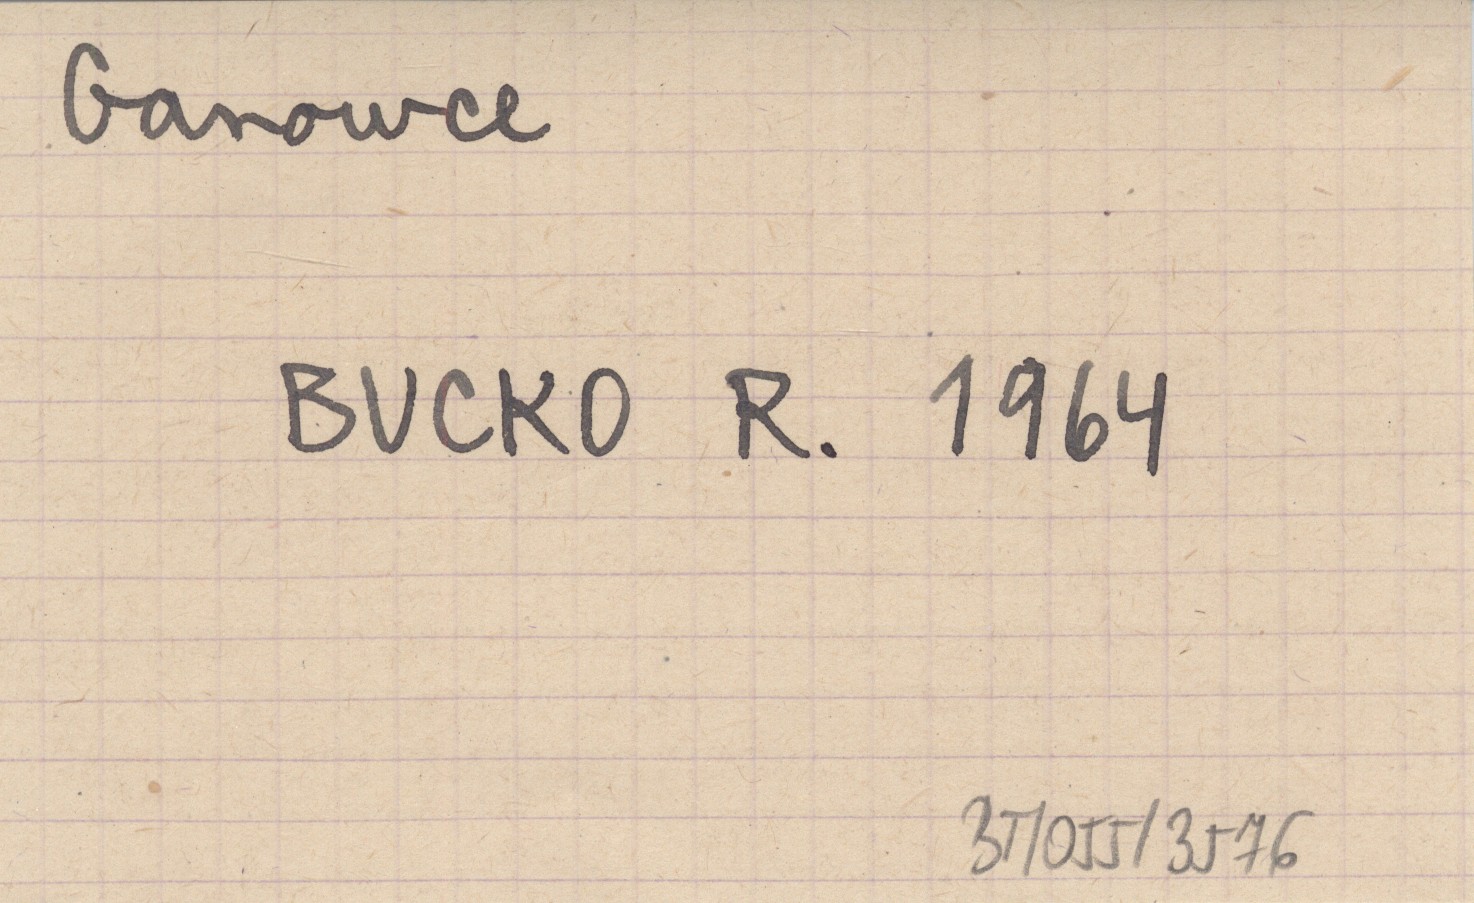 Ganowce
BUCKO R. 1964
35/055/3576